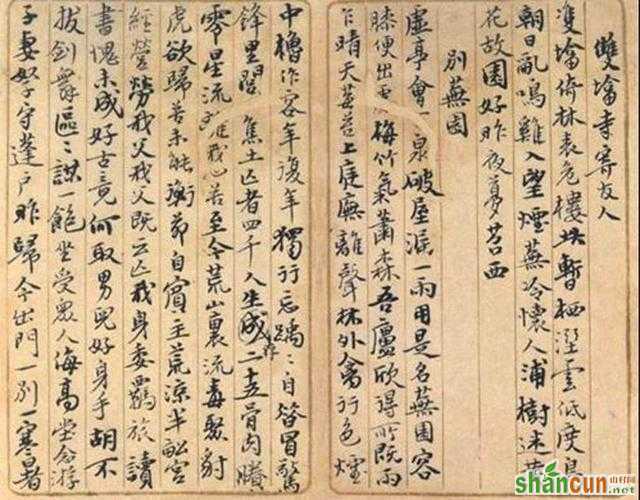 雙墖寺寄友人
雙墖倚林表危樓共暫栖溼雲低度鳥
朝日亂鳴雞入望煙蕪冷懷人浦樹迷黃
花故園好昨夜夢苕西
別蕪園
虛亭會一泉破屋漏一雨用是名蕪園容
膝便出梅竹氣蕭森吾廬欣得所既雨
乍晴天莓苔上庭廡離聲林外禽行色煙
中櫓作客年復年獨行忘踽〻自咎冒驚
鋒里閭焦土亡者四千人生成二十五骨肉賸
零星流離我心苦至今荒山裏流毒聚豺
虎欲歸苦未能衡茆自賓主荒涼半畝宮
經營勞我父我父既云亡我身委羈旅讀
書愧未成好古竟何取男兒好身手胡不
拔劍舞區〻謀飽坐受眾人侮高堂念游
子妻孥守蓬戶昨歸今出門一別一寒暑
shancun
山村网
.net